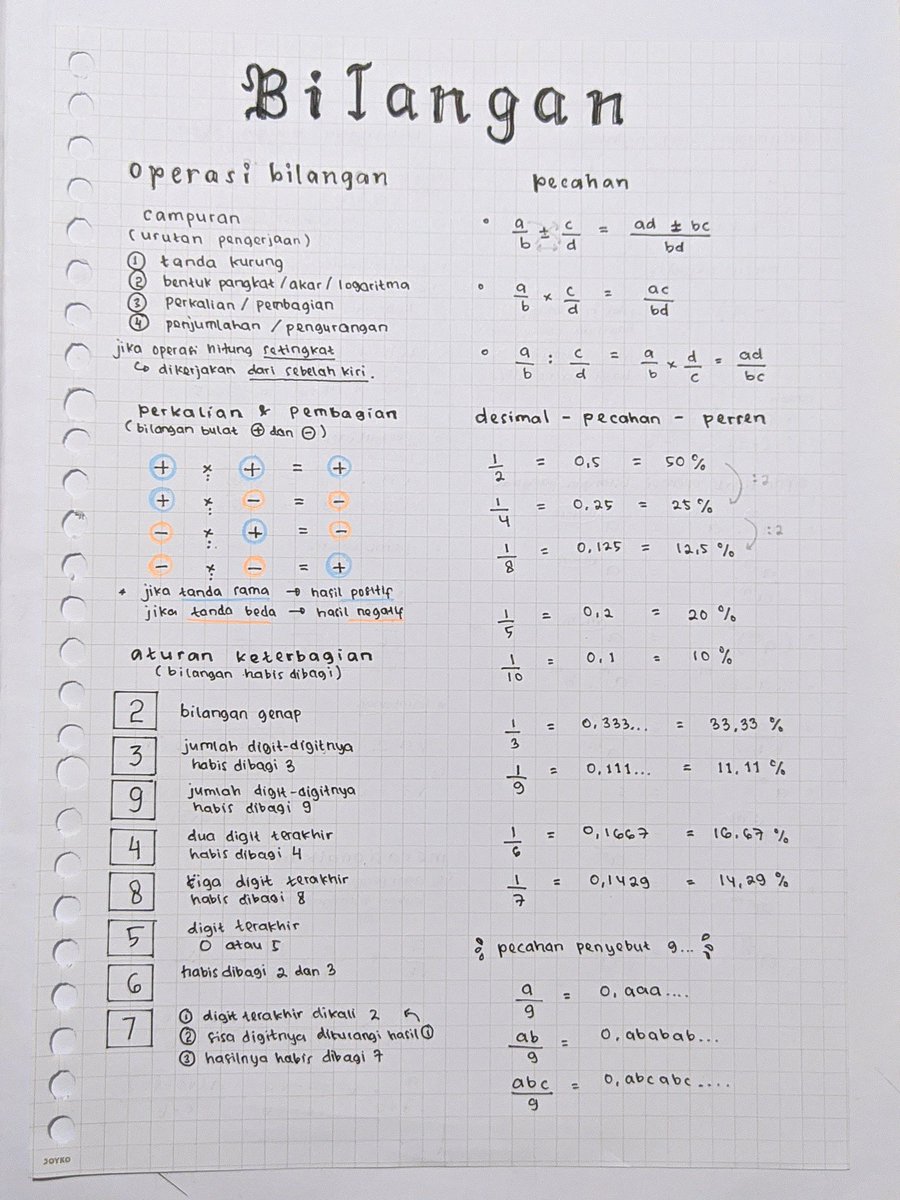 Bilangan
operasi bilangan
campuran
(urutan pengerjaan)
① tanda kurung
② bentuk pangkat/akar/logaritma
③ perkalian / pembagian
④ penjumlahan / pengurangan
jika operasi hitung setingkat
↳ dikerjakan dari sebelah kiri.
perkalian & pembagian
(bilangan bulat ⊕ dan ⊖)
⊕ × : ⊕ = ⊕
⊕ × : ⊖ = ⊖
⊖ × : ⊕ = ⊖
⊖ × : ⊖ = ⊕
* jika tanda sama → hasil positif
jika tanda beda → hasil negatif
aturan keterbagian
(bilangan habis dibagi)
2 bilangan genap
3 jumlah digit-digitnya
habis dibagi 3
9 jumlah digit-digitnya
habis dibagi 9
4 dua digit terakhir
habis dibagi 4
8 tiga digit terakhir
habis dibagi 8
5 digit terakhir
0 atau 5
6 habis dibagi 2 dan 3
7 ① digit terakhir dikali 2 ↖
② sisa digitnya dikurangi hasil ①
③ hasilnya habis dibagi 7
pecahan
• a/b ± c/d = ad ± bc/bd
• a/b × c/d = ac/bd
• a/b : c/d = a/b × d/c = ad/bc
desimal - pecahan - persen
1/2 = 0,5 = 50 %
:2
1/4 = 0,25 = 25 %
:2
1/8 = 0,125 = 12,5 %
1/5 = 0,2 = 20 %
1/10 = 0,1 = 10 %
1/3 = 0,333... = 33,33 %
1/9 = 0,111... = 11,11 %
1/6 = 0,1667 = 16,67 %
1/7 = 0,1429 = 14,29 %
pecahan penyebut 9...
a/9 = 0,aaa....
ab/9 = 0,ababab...
abc/9 = 0,abcabc....
JOYKO